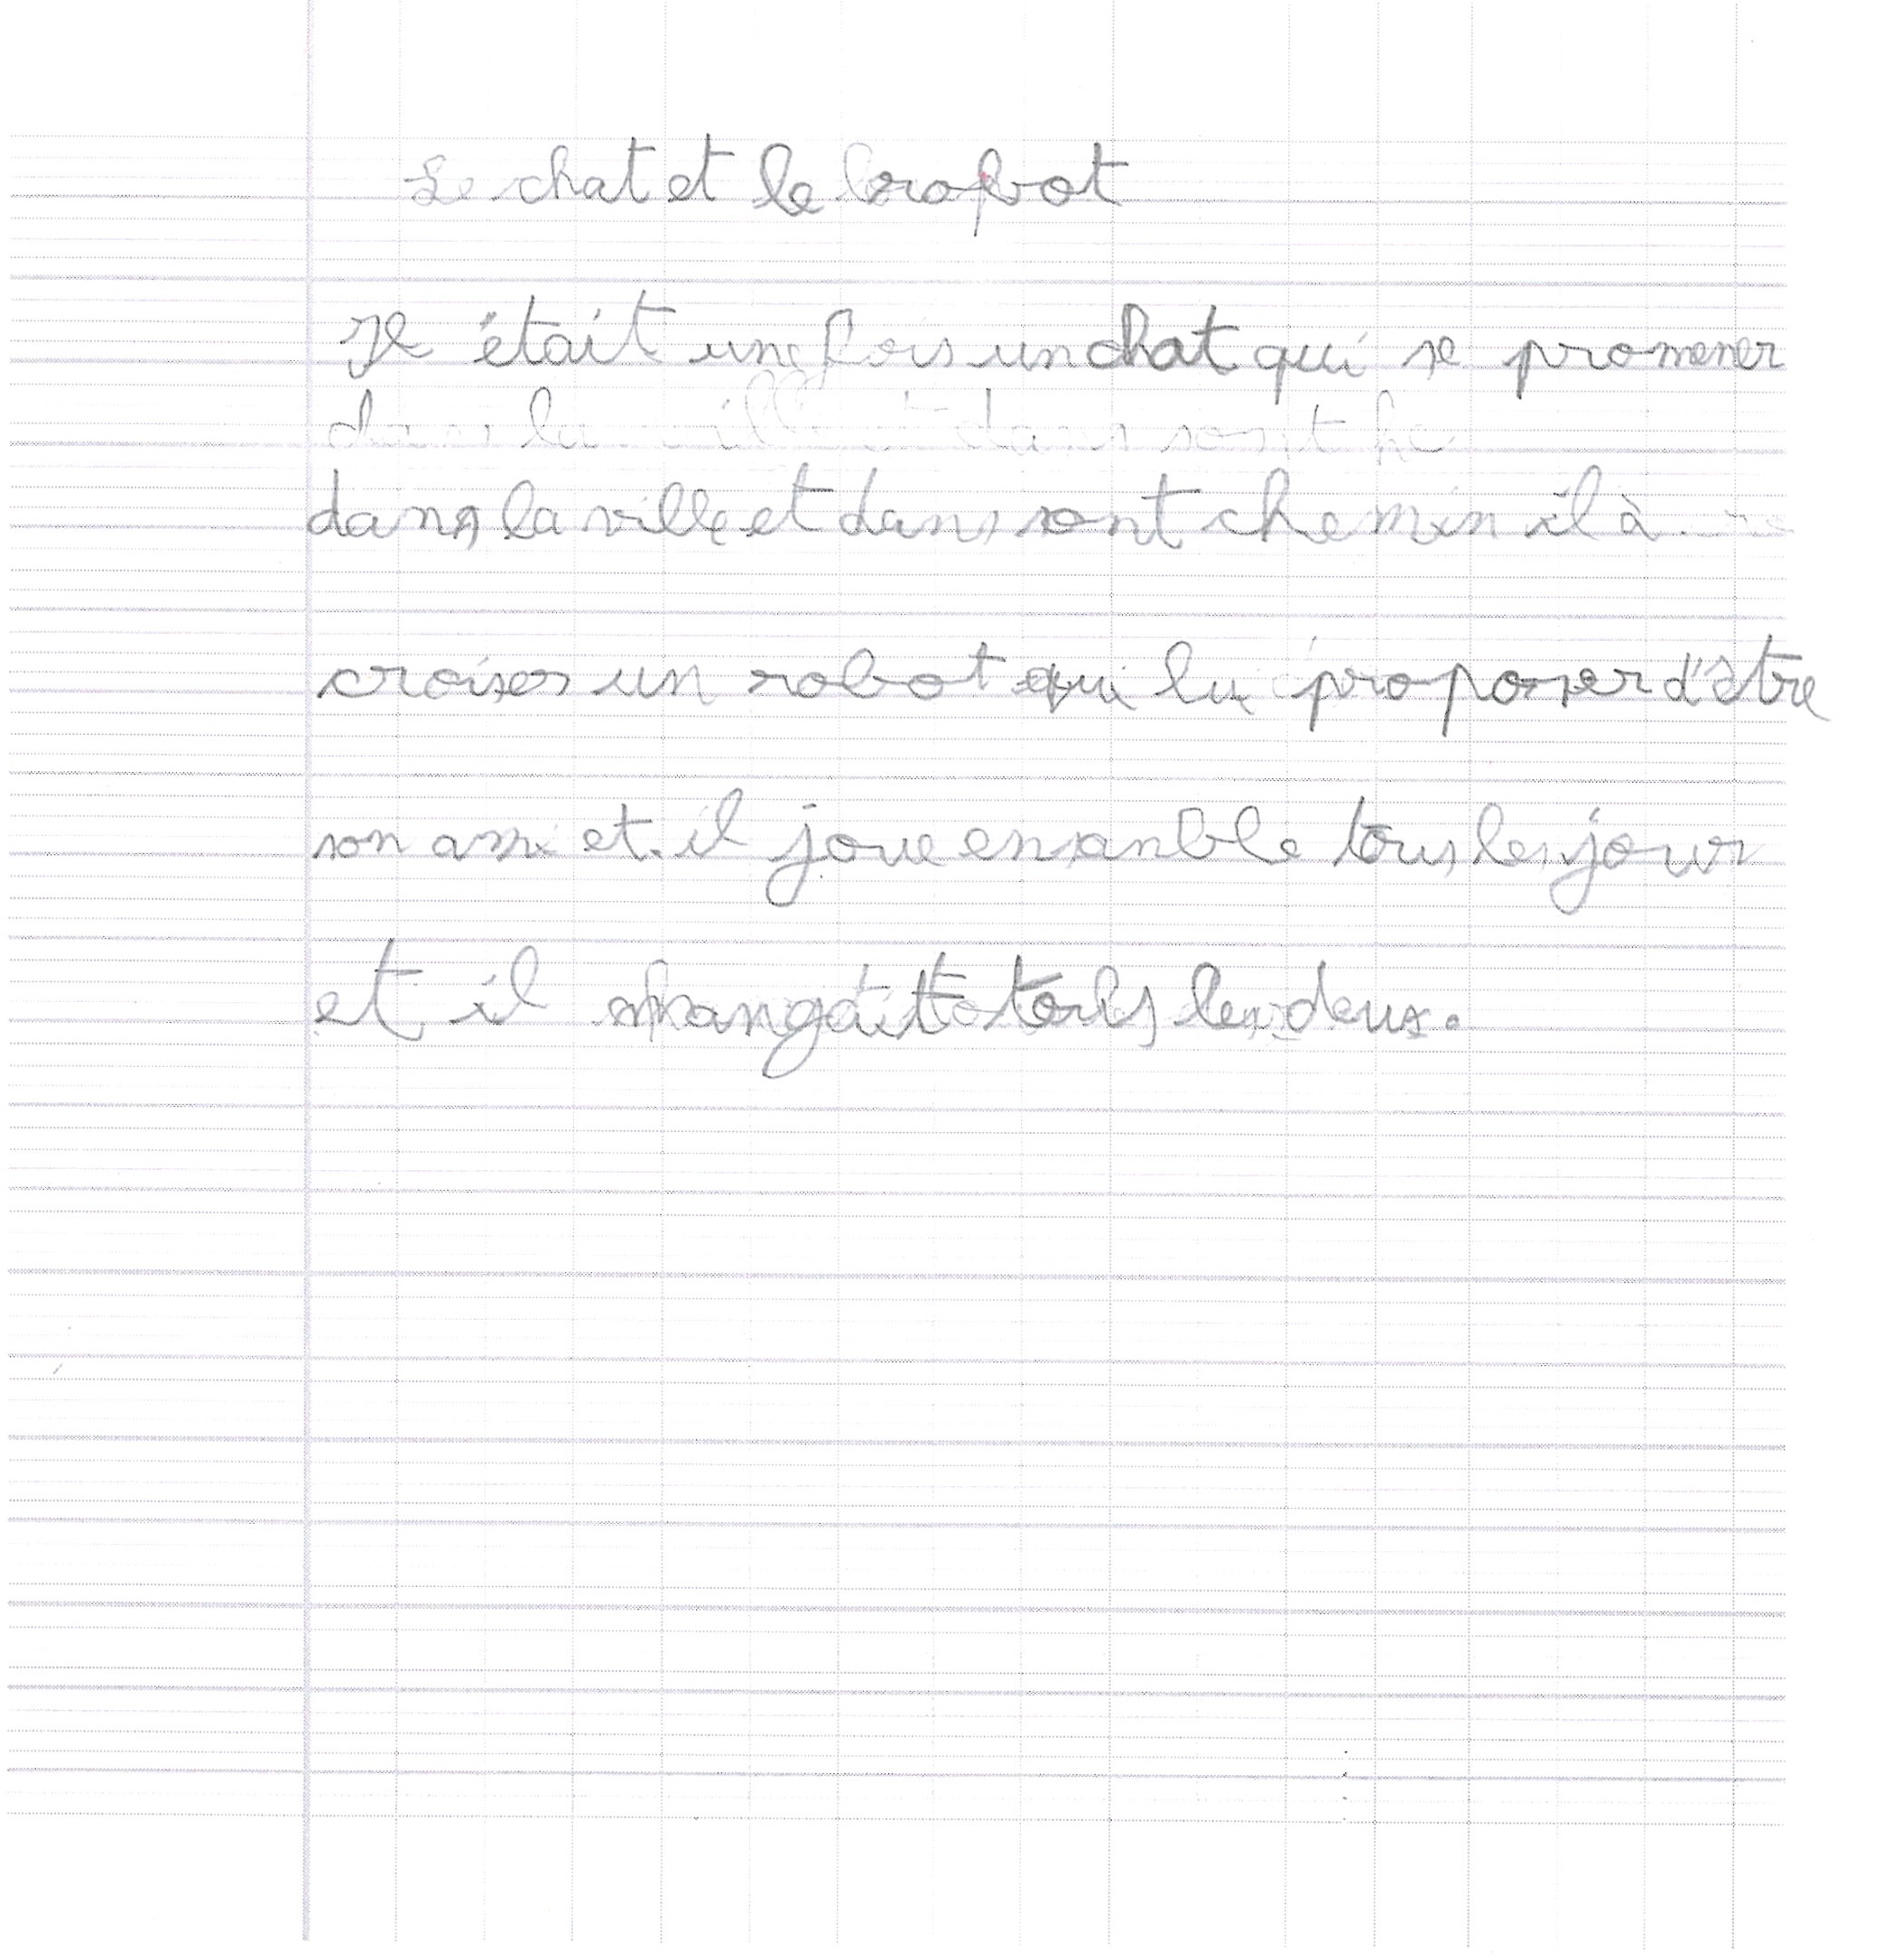 Le chat et le robot
Il était une fois un chat qui se promener
dans la ville et dans sont che
dans la ville et dans sont chemin il à
croiser un robot qui lui proposer d'être
son ami et il joue ensanble tous les jour
et il mangait tous les deux.